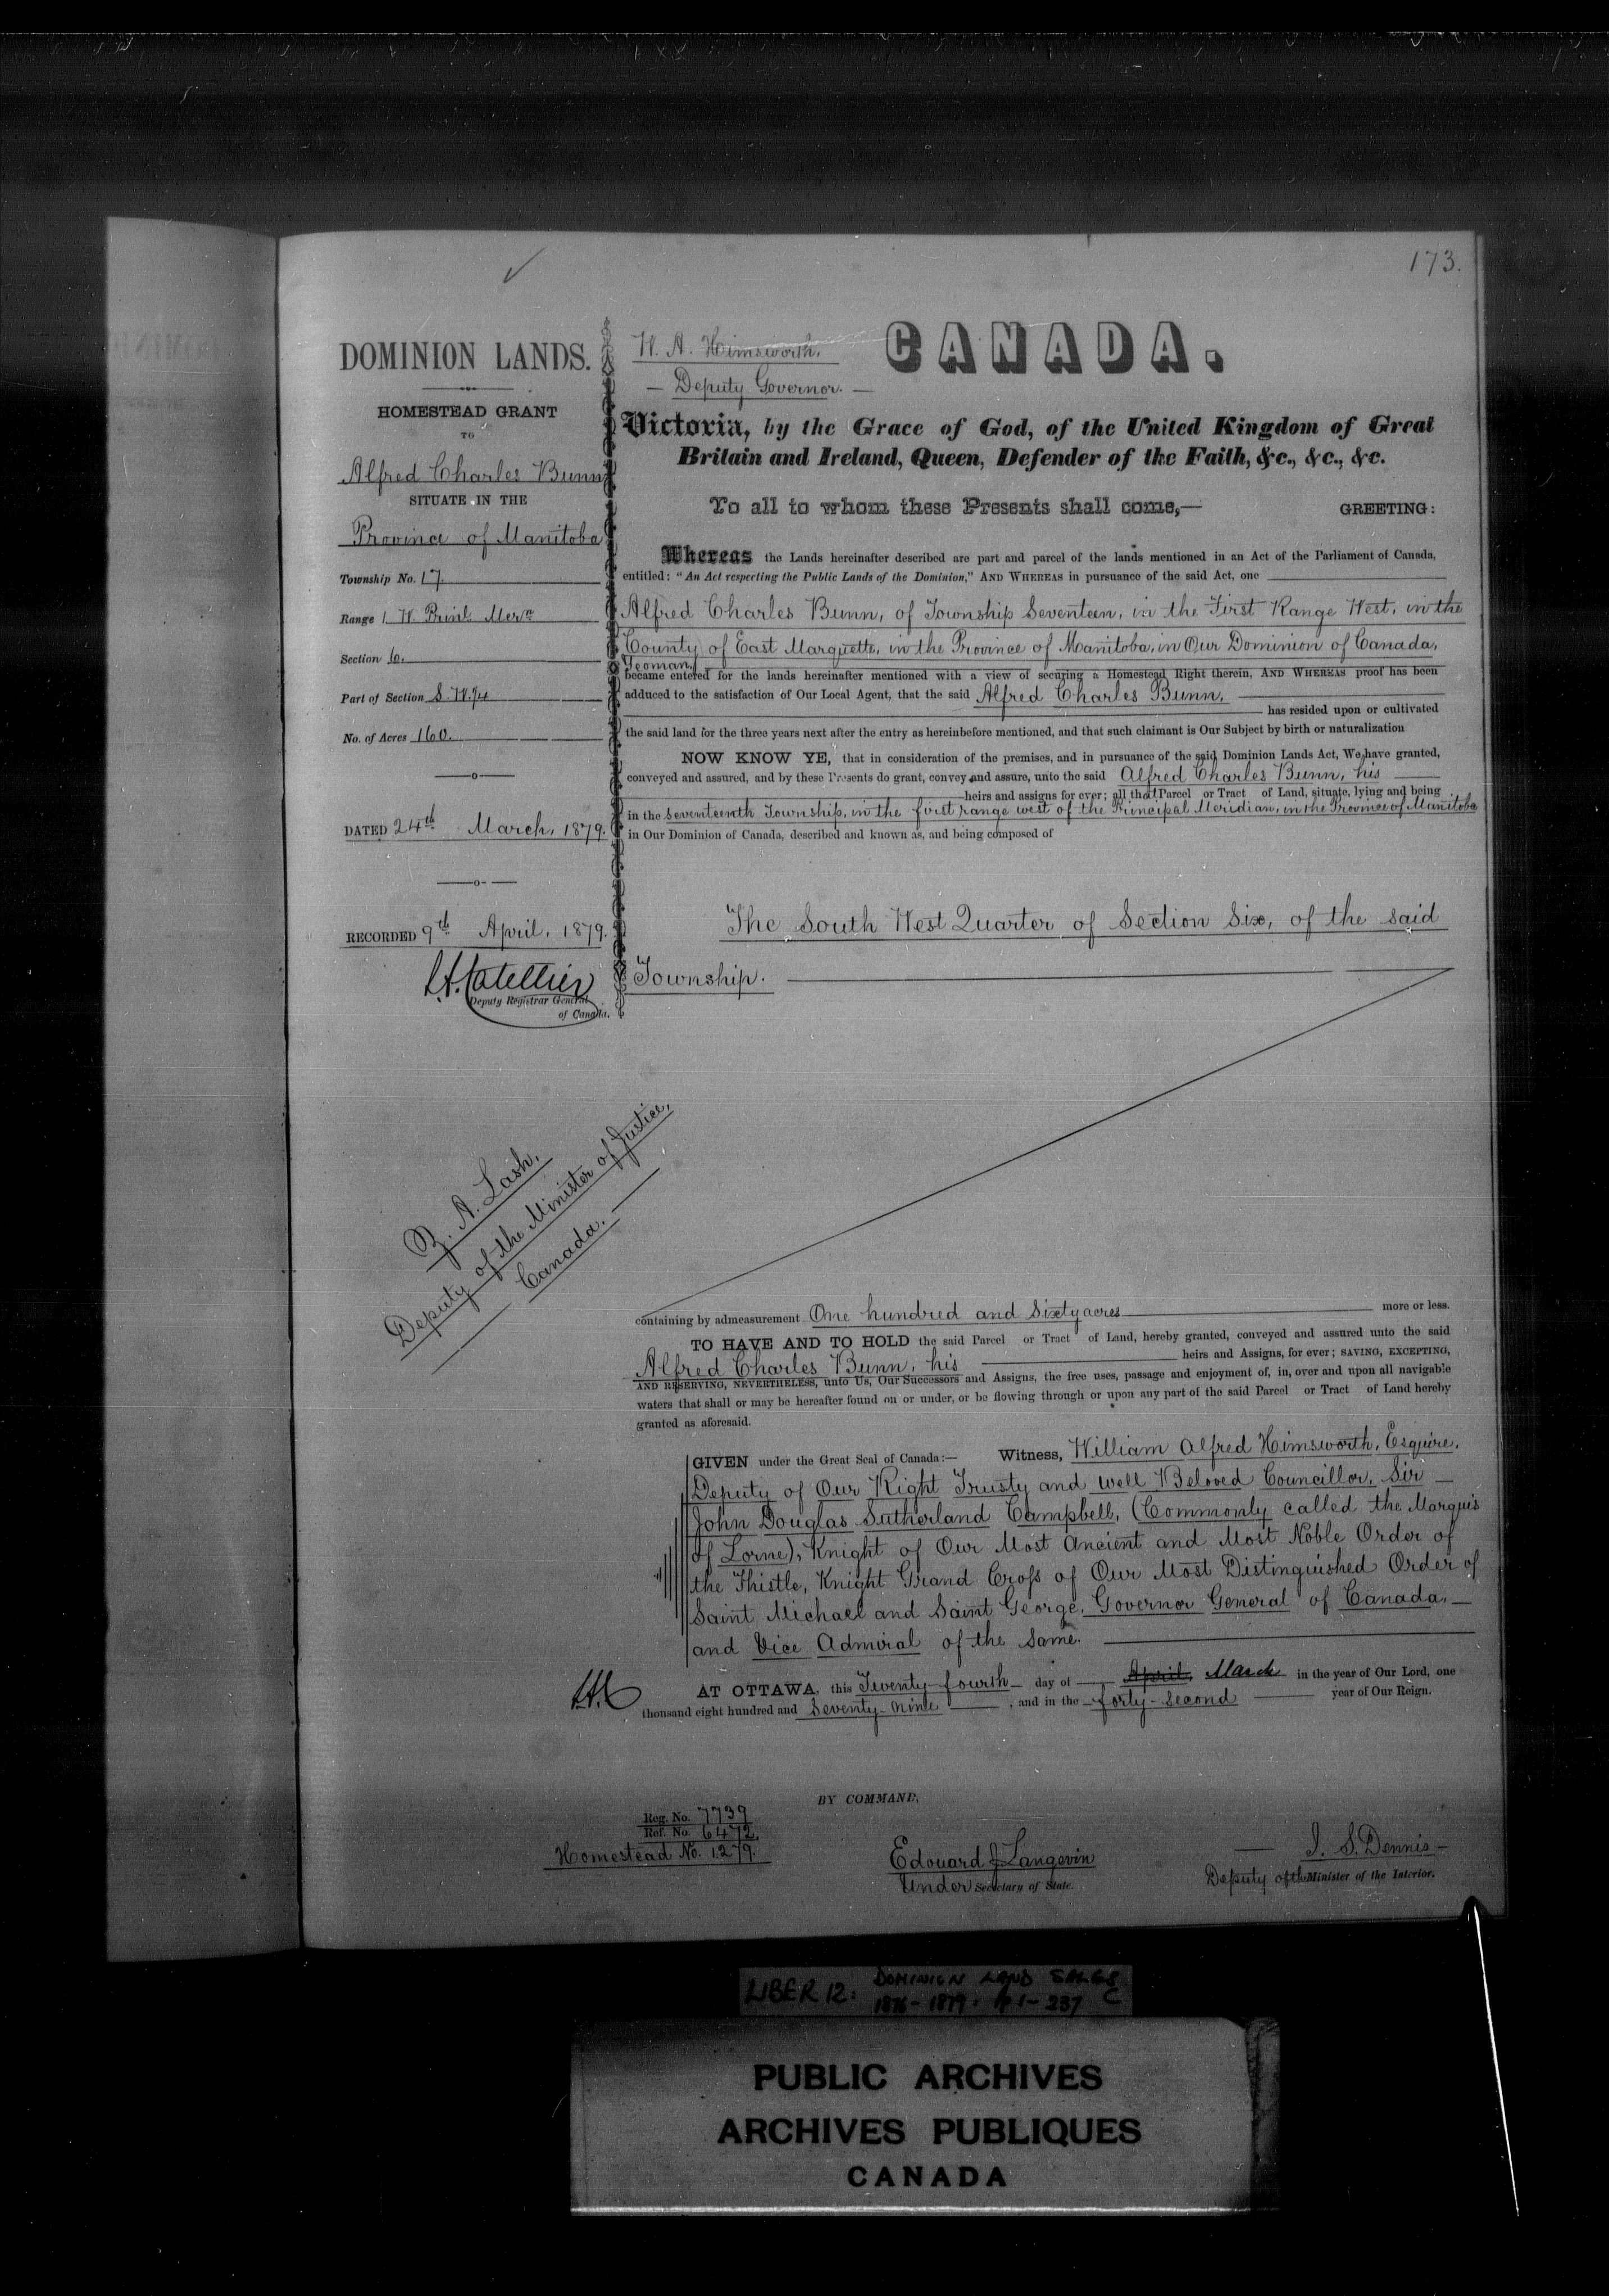 173.
DOMINION LANDS.
HOMESTEAD GRANT
TO
Alfred Charles Bunn
SITUATE IN THE
Province of Manitoba
Township No. 17.
Range 1 W. Prinl Mern
Section 6.
Part of Section S. W. 1/4
No. of Acres 160.
DATED 24th March, 1879.
RECORDED 9th April, 1879.
Deputy Registrar General
of Canada.
Z. A. Lash,
Deputy of the Minister of Justice,
Canada.
W. A. Himsworth.
Deputy Governor.
CANADA.
Victoria, by the Grace of God, of the United Kingdom of Great
Britain and Ireland, Queen, Defender of the Faith, &c., &c., &c.
To all to whom these Presents shall come,— GREETING:
Whereas the Lands hereinafter described are part and parcel of the lands mentioned in an Act of the Parliament of Canada,
entitled: "An Act respecting the Public Lands of the Dominion," AND WHEREAS in pursuance of the said Act, one
Alfred Charles Bunn, of Township Seventeen, in the First Range West, in the
County of East Marquette, in the Province of Manitoba, in Our Dominion of Canada,
Yeoman,
became entered for the lands hereinafter mentioned with a view of securing a Homestead Right therein, AND WHEREAS proof has been
adduced to the satisfaction of Our Local Agent, that the said Alfred Charles Bunn,
has resided upon or cultivated
the said land for the three years next after the entry as hereinbefore mentioned, and that such claimant is Our Subject by birth or naturalization
NOW KNOW YE, that in consideration of the premises, and in pursuance of the said Dominion Lands Act, We have granted,
conveyed and assured, and by these Presents do grant, convey and assure, unto the said Alfred Charles Bunn, his
heirs and assigns for ever; all that Parcel or Tract of Land, situate, lying and being
in the Seventeenth Township, in the first range west of the Principal Meridian, in the Province of Manitoba
in Our Dominion of Canada, described and known as, and being composed of
The South West Quarter of Section Six, of the said
Township.
containing by admeasurement One hundred and Sixty acres more or less.
TO HAVE AND TO HOLD the said Parcel or Tract of Land, hereby granted, conveyed and assured unto the said
Alfred Charles Bunn, his heirs and Assigns, for ever; SAVING, EXCEPTING,
AND RESERVING, NEVERTHELESS, unto Us, Our Successors and Assigns, the free uses, passage and enjoyment of, in, over and upon all navigable
waters that shall or may be hereafter found on or under, or be flowing through or upon any part of the said Parcel or Tract of Land hereby
granted as aforesaid.
GIVEN under the Great Seal of Canada:— Witness, William Alfred Himsworth, Esquire,
Deputy of Our Right Trusty and well Beloved Councillor, Sir
John Douglas Sutherland Campbell, (Commonly called the Marquis
of Lorne), Knight of Our Most Ancient and Most Noble Order of
the Thistle, Knight Grand Cross of Our Most Distinguished Order of
Saint Michael and Saint George, Governor General of Canada,
and Vice Admiral of the Same.
AT OTTAWA, this Twenty-fourth day of April, March in the year of Our Lord, one
thousand eight hundred and Seventy-nine, and in the forty-second year of Our Reign.
BY COMMAND,
Reg. No. 7739
Ref. No. 6472.
Homestead No. 1279.
Edouard J Langevin
Under Secretary of State.
J. S. Dennis
Deputy of the Minister of the Interior.
LIBER 12: DOMINION LAND SALES
1876-1879. pp 1-237 C
PUBLIC ARCHIVES
ARCHIVES PUBLIQUES
CANADA